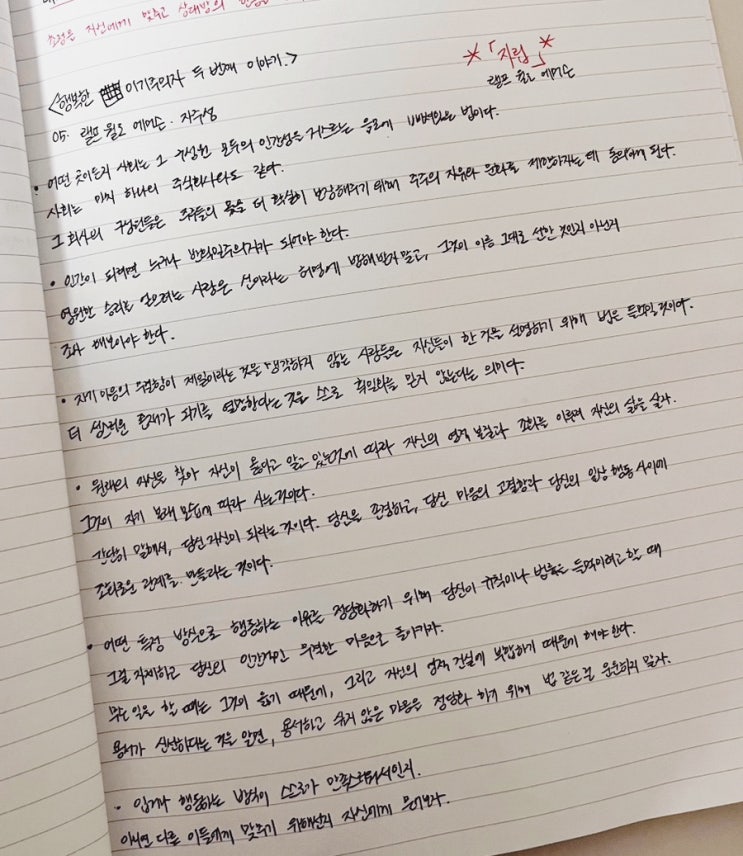 초점은 자신에게 맞추고 상대방의
<행복한 이기주의자 두 번째 이야기.>
*「자립」*
랠프 월도 에머슨
05. 랠프 월도 에머슨. 자주성
• 어떤 곳이든지 사회는 그 구성원 모두의 인간성을 거스르는 음모에 법이다.
사회는 마치 하나의 주식회사와도 같다.
그 회사의 구성원들은 주주들의 몫을 더 확실히 보장해주기 위해 주주의 자유와 문화를 제한하자는 데 동의하게 된다.
• 인간이 되려면 누구나 반획일주의자가 되어야 한다.
영원한 승리를 얻으려는 사람은 선이라는 허명에 방해받지말고, 그것이 이름 그대로 선한 것인지 아닌지
조사 해보아야 한다.
• 자기 마음의 무결함이 제일이라는 것을 생각하지 않는 사람들은 자신들이 한 것을 설명하기 위해 법을 들먹일 것이다.
더 성스러운 존재가 되기를 열망한다는 것은 스스로 획일화를 믿지 않는다는 의미다.
• 원래의 자신을 찾아 자신이 옳다고 알고 있는것에 따라 자신의 영적 본질과 조화를 이루며 자신의 삶을 살자.
그것이 자기 본래 모습에 따라 사는것이다.
간단히 말해서, 당신 자신이 되라는 것이다. 당신을 존경하고, 당신 마음의 고결함과 당신의 일상 행동 사이에
조화로운 관계를 만들라는 것이다.
• 어떤 특정 방식으로 행동하는 이유를 정당화하기 위해 당신이 규칙이나 법률을 들먹이려고 할 때
그걸 자제하고 당신의 인간적인 무결한 마음으로 돌아가라.
무슨 일을 할 때는 그것이 옳기 때문에, 그리고 자신의 영적 진실에 부합하기 때문에 해야 한다.
용서가 신성하다는 것을 알면, 용서하고 싶지 않은 마음을 정당화 하기 위해 법 같은걸 운운하지 말자.
• 입거나 행동하는 방식이 스스로가 만족스러워서인지.
아니면 다른 이들에게 맞추기 위해선지 자신에게 물어보라.